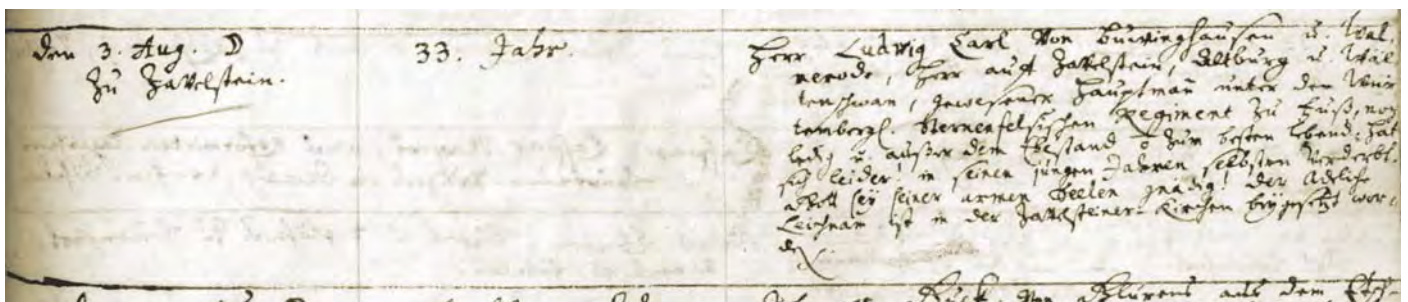 den 3. Aug. ☽
Zu Zavelstein.
33. Jahr.
Herr Ludwig Carl von Buwinghausen u. Wal-
merode, Herr auf Zavelstein, Altburg u. Wäl-
tenschwan, gewesener Hauptmañ unter dem Wür-
tembergl. Sternenfelsischen Regiment zu Fuß, noch
ledig u. außer dem Ehestand
sich leider! in seinen jungen Jahren selbsten verderbt.
Gott sey seiner armen Seelen gnädig! der Adeliche
Leichnam ist in der Zavelsteiner Kirchen beygesetzt wor-
den.
von aus dem